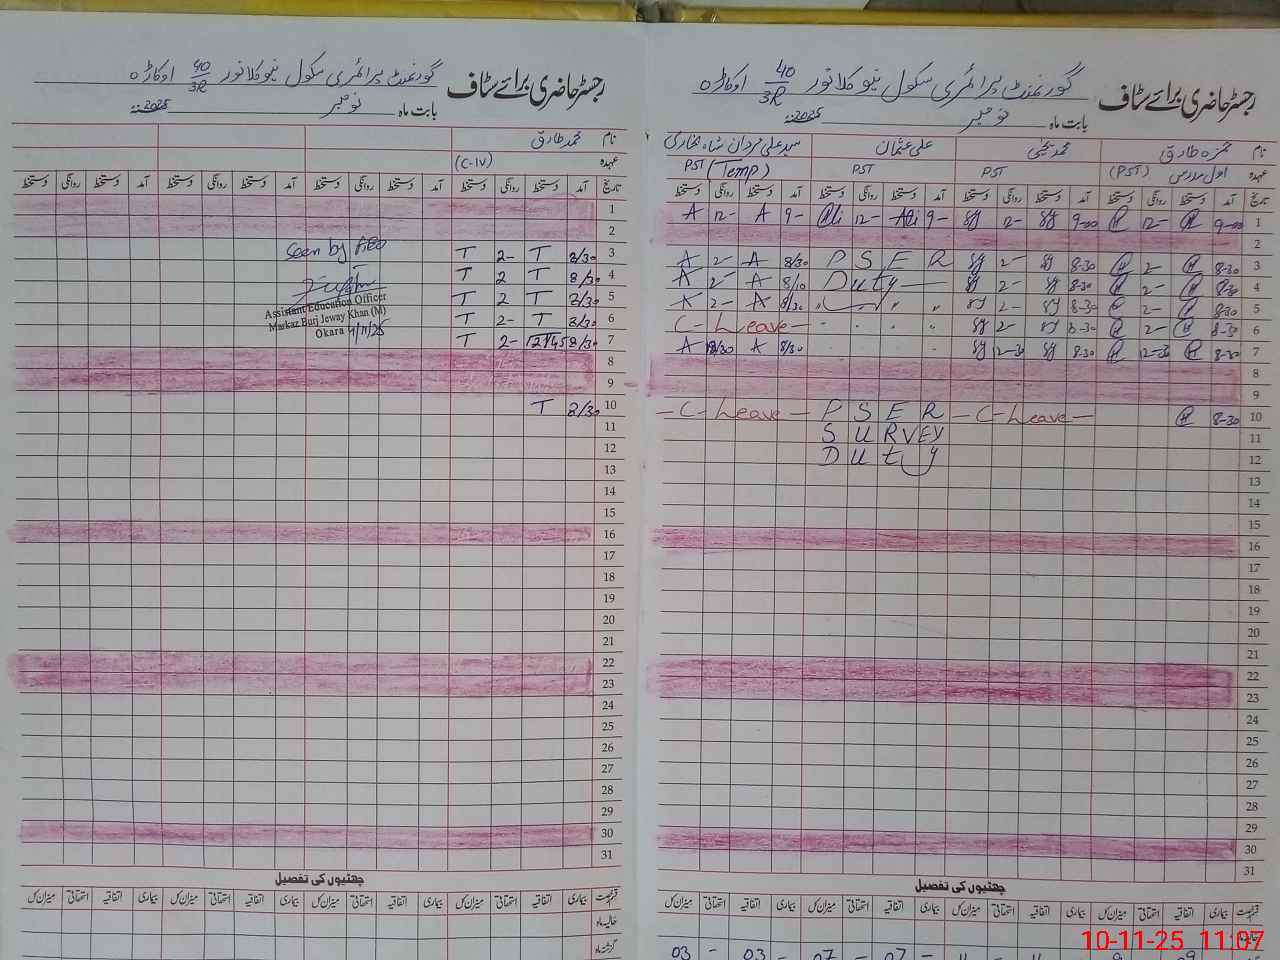 رجسٹر حاضری برائے سٹاف گورنمنٹ پرائمری سکول نیو کلانور 40/3R اوکاڑہ
بابت ماہ نومبر 2025ء
نام حمزہ طارق محمد یحییٰ علی عثمان سید علی مردان شاہ بخاری
عہدہ اول مدرس (PST) PST PST PST (Temp)
تاریخ آمد دستخط روانگی دستخط آمد دستخط روانگی دستخط آمد دستخط روانگی دستخط آمد دستخط روانگی دستخط
1 9-00 12- 9-00 12- 9- Ali 12- Ali 9- A 12- A
2
3 8-30 2- 8-30 2- P S E R 8/30 A 2- A
4 8-30 2- 8-30 2- Duty 8/10 A 2- A
5 8-30 2- 8-30 2 8/30 A 2- A
6 8-30 2- 8-30 2- C-Leave
7 8-30 12-30 8-30 12-30 8/30 A A
8
9
10 8-30 C-Leave P S E R C-Leave
11 S U R V E Y
12 D u t y
13
14
15
16
17
18
19
20
21
22
23
24
25
26
27
28
29
30
31
چھٹیوں کی تفصیل
قسم رخصت بیماری اتفاقیہ استحقاقی میزان کل بیماری اتفاقیہ استحقاقی میزان کل بیماری اتفاقیہ استحقاقی میزان کل بیماری اتفاقیہ استحقاقی میزان کل
03 - 03 - 07 - 07 -
رجسٹر حاضری برائے سٹاف گورنمنٹ پرائمری سکول نیو کلانور 40/3R اوکاڑہ
بابت ماہ نومبر 2025ء
نام محمد طارق
عہدہ (C-IV)
تاریخ آمد دستخط روانگی دستخط آمد دستخط روانگی دستخط آمد دستخط روانگی دستخط آمد دستخط روانگی دستخط
1
2
3 8/30 T 2- T Seen by AEO
4 8/30 T 2 T
5 8/30 T 2 T
Assistant Education Officer
Markaz Burj Jeway Khan (M)
Okara
6 8/30 T 2- T
7 8/30 2- T
8
9
10 8/30 T
11
12
13
14
15
16
17
18
19
20
21
22
23
24
25
26
27
28
29
30
31
چھٹیوں کی تفصیل
قسم رخصت بیماری اتفاقیہ استحقاقی میزان کل بیماری اتفاقیہ استحقاقی میزان کل بیماری اتفاقیہ استحقاقی میزان کل بیماری اتفاقیہ استحقاقی میزان کل
حالیہ ماہ
گزشتہ ماہ
10-11-25 11:07